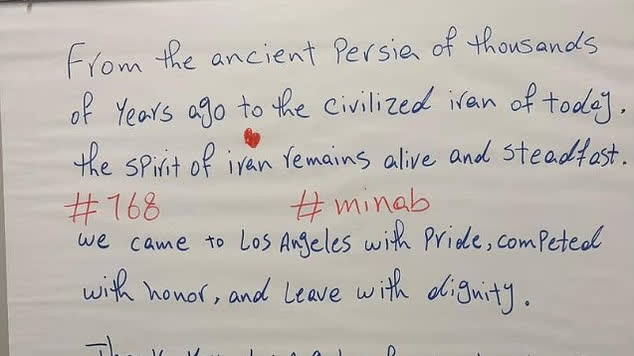 From the ancient Persia of thousands
of years ago to the civilized iran of today.
the spirit of iran remains alive and steadfast.
#168 #minab
we came to Los Angeles with Pride, competed
with honor, and Leave with dignity.